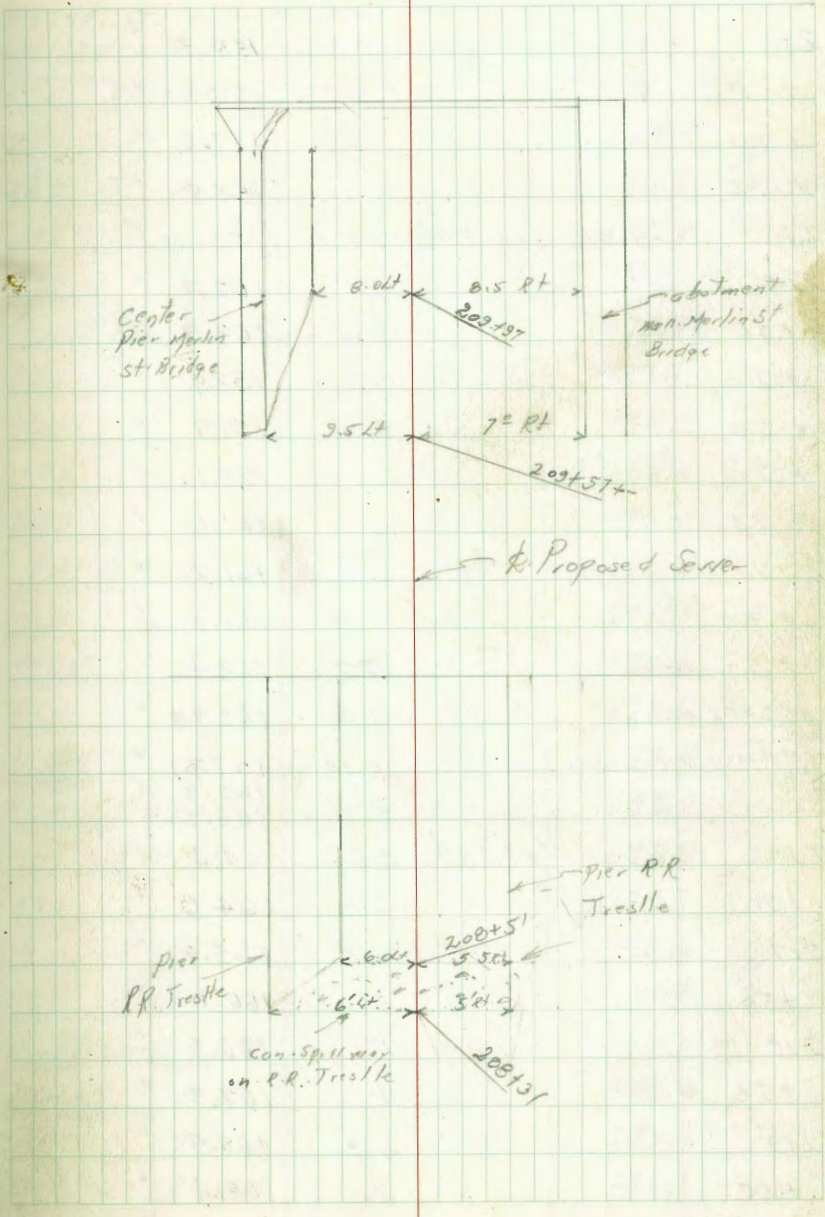 8.0Lt
8.5 Rt
209+97
Center
Pier Merlin
St. Bridge
abotment
Merlin St
Bridge
9.5 Lt
7º Rt
209+57+-
℄ Proposed Sewer
Pier R.R.
Trestle
208+51
6.0Lt
5.5Rt
Pier
R.R. Trestle
6'Lt
3'Rt
Con. Spillway
on R.R. Trestle
208+31